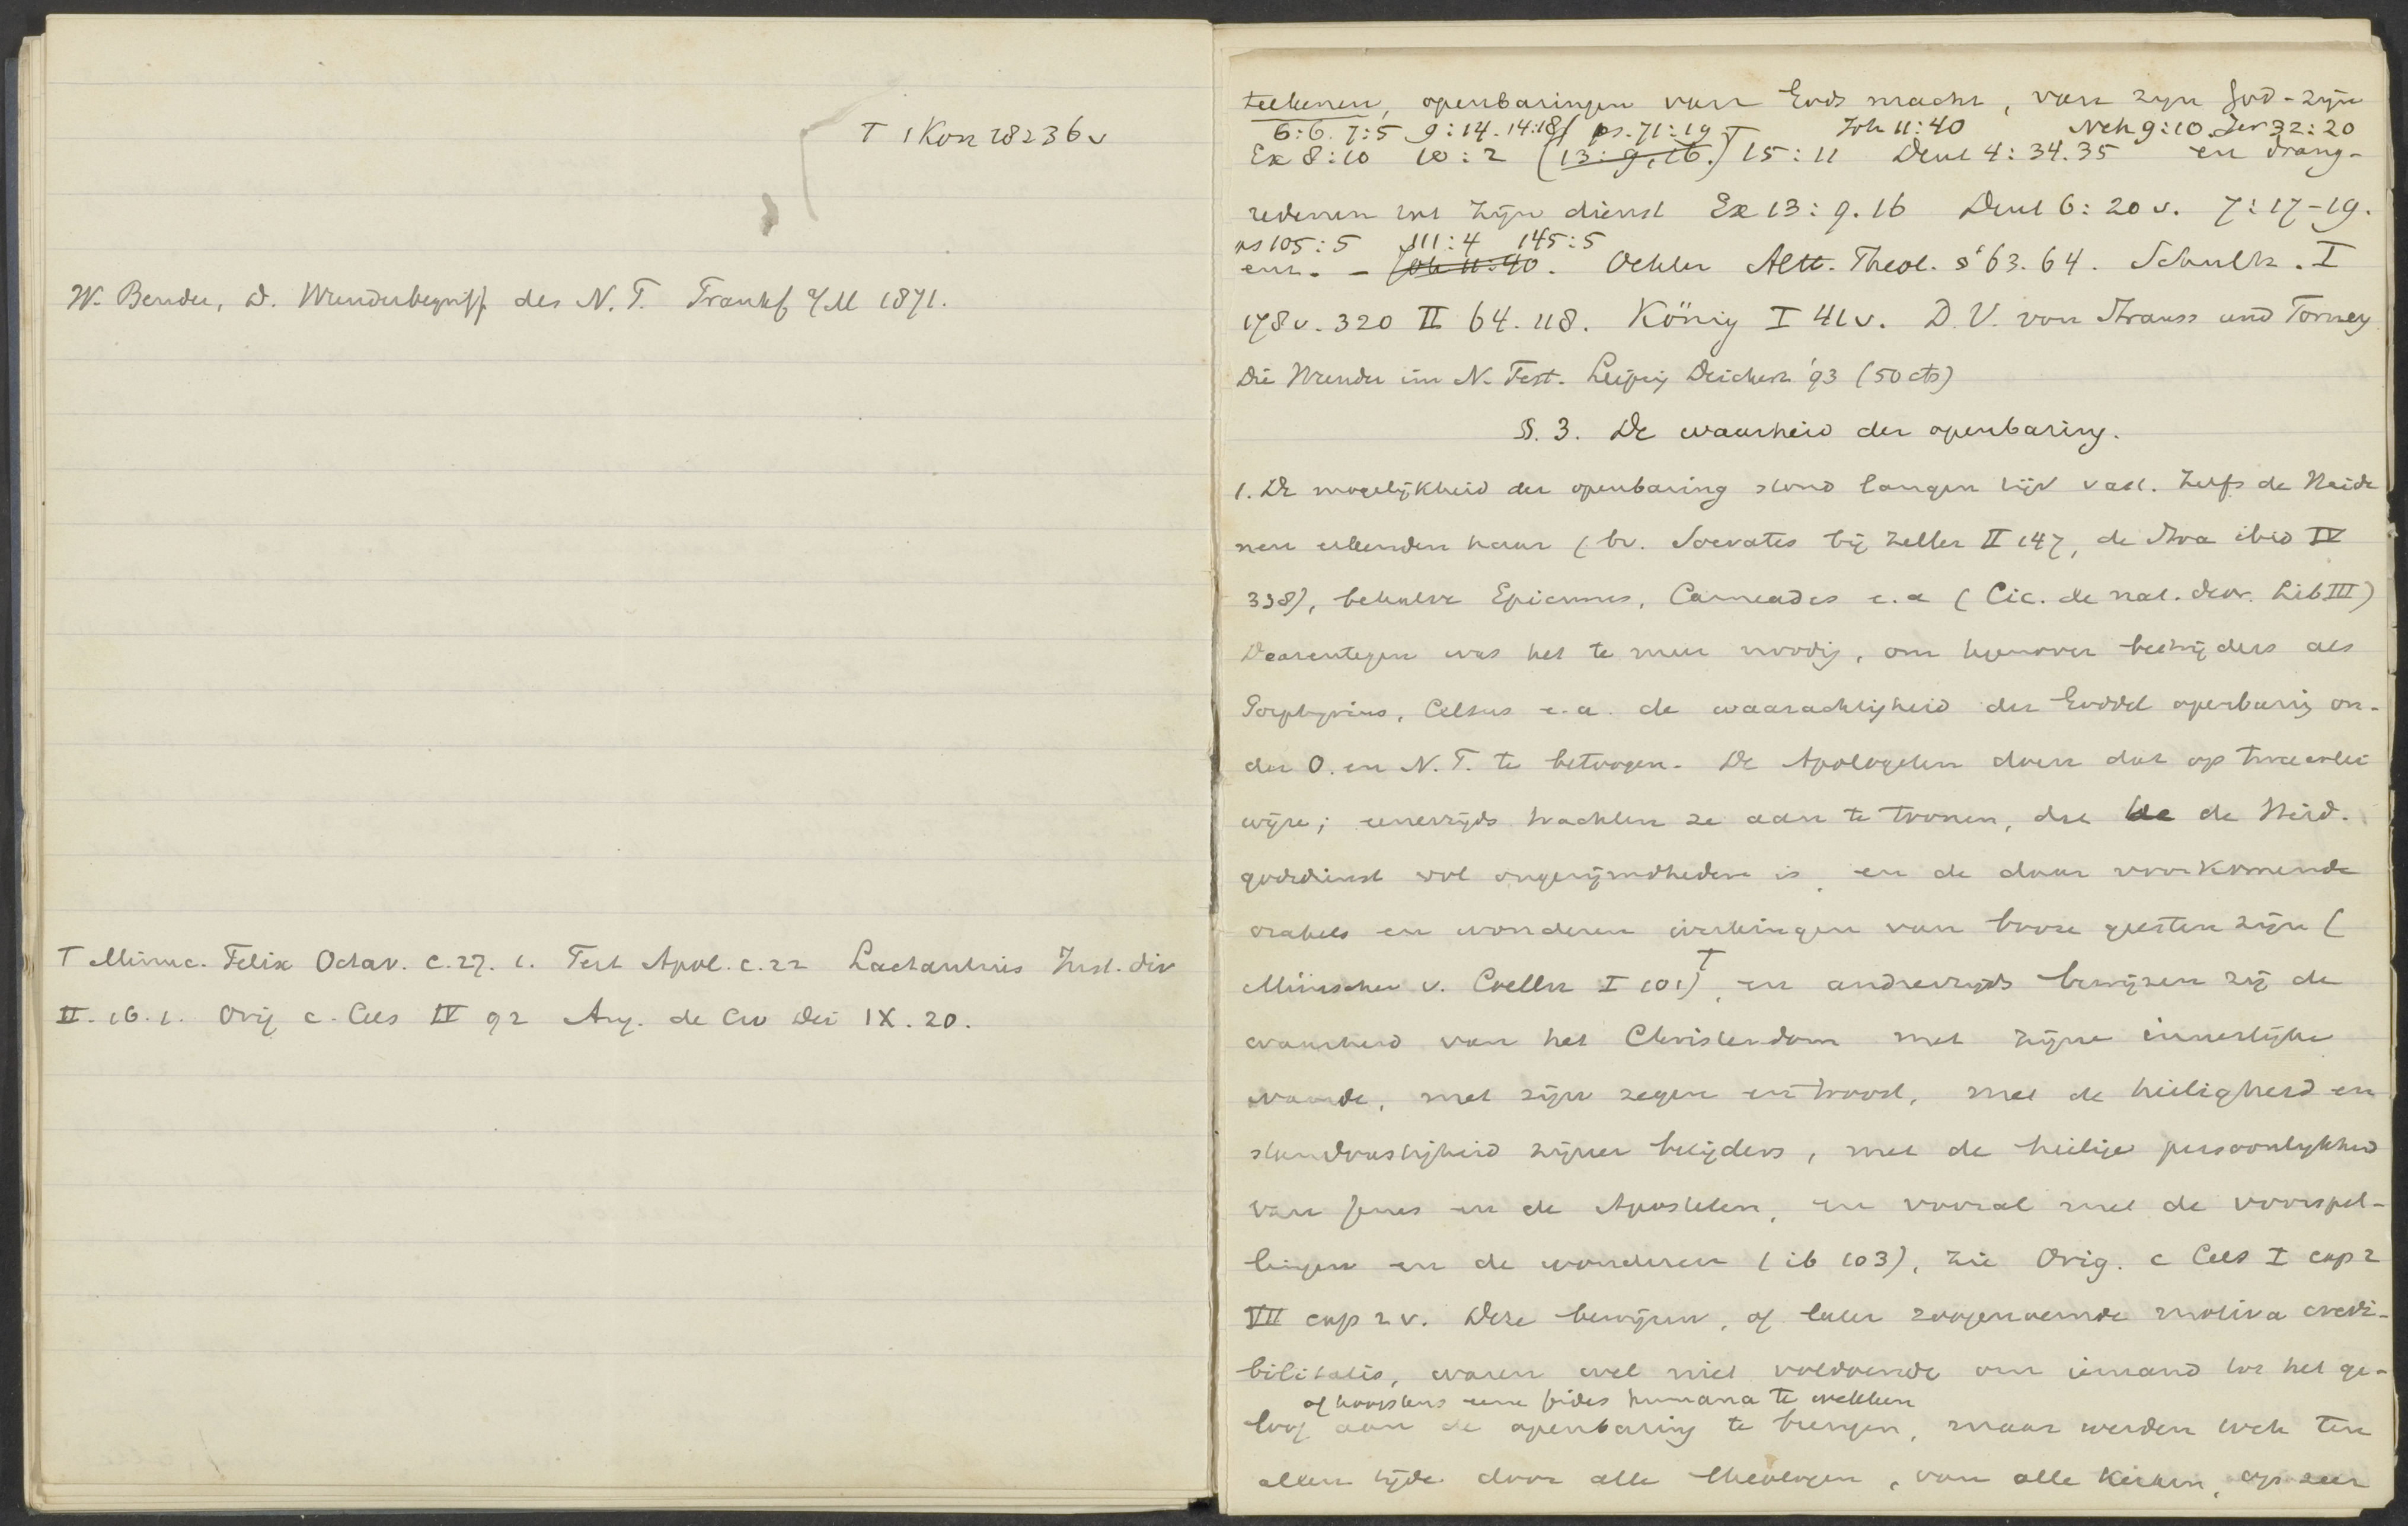 T 1 Kon 18 23 36 v
W. Bender, D. Wunderbegriff des N. T. Frankf a/M 1871.
T Minuc. Felix Octav. c. 27. 1. Tert Apol. c. 22 Lactantius Inst. div
II. 16. 1. Orig c. Cels IV 92 Aug. de Civ Dei IX. 20.
teekenen, openbaringen van Gods macht, van zijn God-zijn
6:6. 7:5 9:14. 14:18 ps. 71:19 T Joh 11:40 Neh 9:10. Jer 32:20
Ex 8:10 10:2 (13:9,16.) 15:11 Deut 4:34.35 en drang-
redenen tot zijn dienst Ex 13:9.16 Deut 6:20 v. 7:17-19.
ps 105:5 111:4 145:5
enz. - Joh 11:40. Oehler Altt. Theol. § 63. 64. Schultz. I
178 v. 320 II 64. 118. König I 41 v. D. V. von Strauss und Torney
Die Wunder im N. Test. Leipzig Deichert '93 (50 cts)
§. 3. De waarheid der openbaring.
1. De mogelijkheid der openbaring stond langen tijd vast. Zelfs de Heide
nen erkenden haar (bv. Socrates bij Zeller II 147, de Stoa ibid IV
338), behalve Epicurus, Carneades e. a (Cic. de nat. deor. Lib III)
Daarentegen was het te meer noodig, om tegenover bestrijders als
Porphyrius, Celsus e. a. de waarachtigheid der Godd openbaring on-
der O. en N. T. te betoogen. De Apologeten doen dat op tweeerlei
wijze; eenerzijds trachten ze aan te toonen, dat de de Heid.
godsdienst vol ongerijmdheden is, en de daar voorkomende
orakels en wonderen werkingen van booze geesten zijn (
Münscher v. Coelln I 101) T, en anderzijds bewijzen zij de
waarheid van het Christendom met zijne innerlijke
waarde, met zijn zegen en troost, met de heiligheid en
standvastigheid zijner belijders, met de heilige persoonlijkheid
van Jezus en de Apostelen, en vooral met de voorspel-
lingen en de wonderen (ib 103), zie Orig. c Cels I cap 2
VII cap 2 v. Deze bewijzen, of later zoogenaemde motiva credi-
bilitatis, waren wel niet voldoende om iemand tot het ge-
of hoogstens eene fides humana te wekken
loof aan de openbaring te brengen, maar werden toch ten
allen tijde door alle theologen, van alle kerken, op zeer